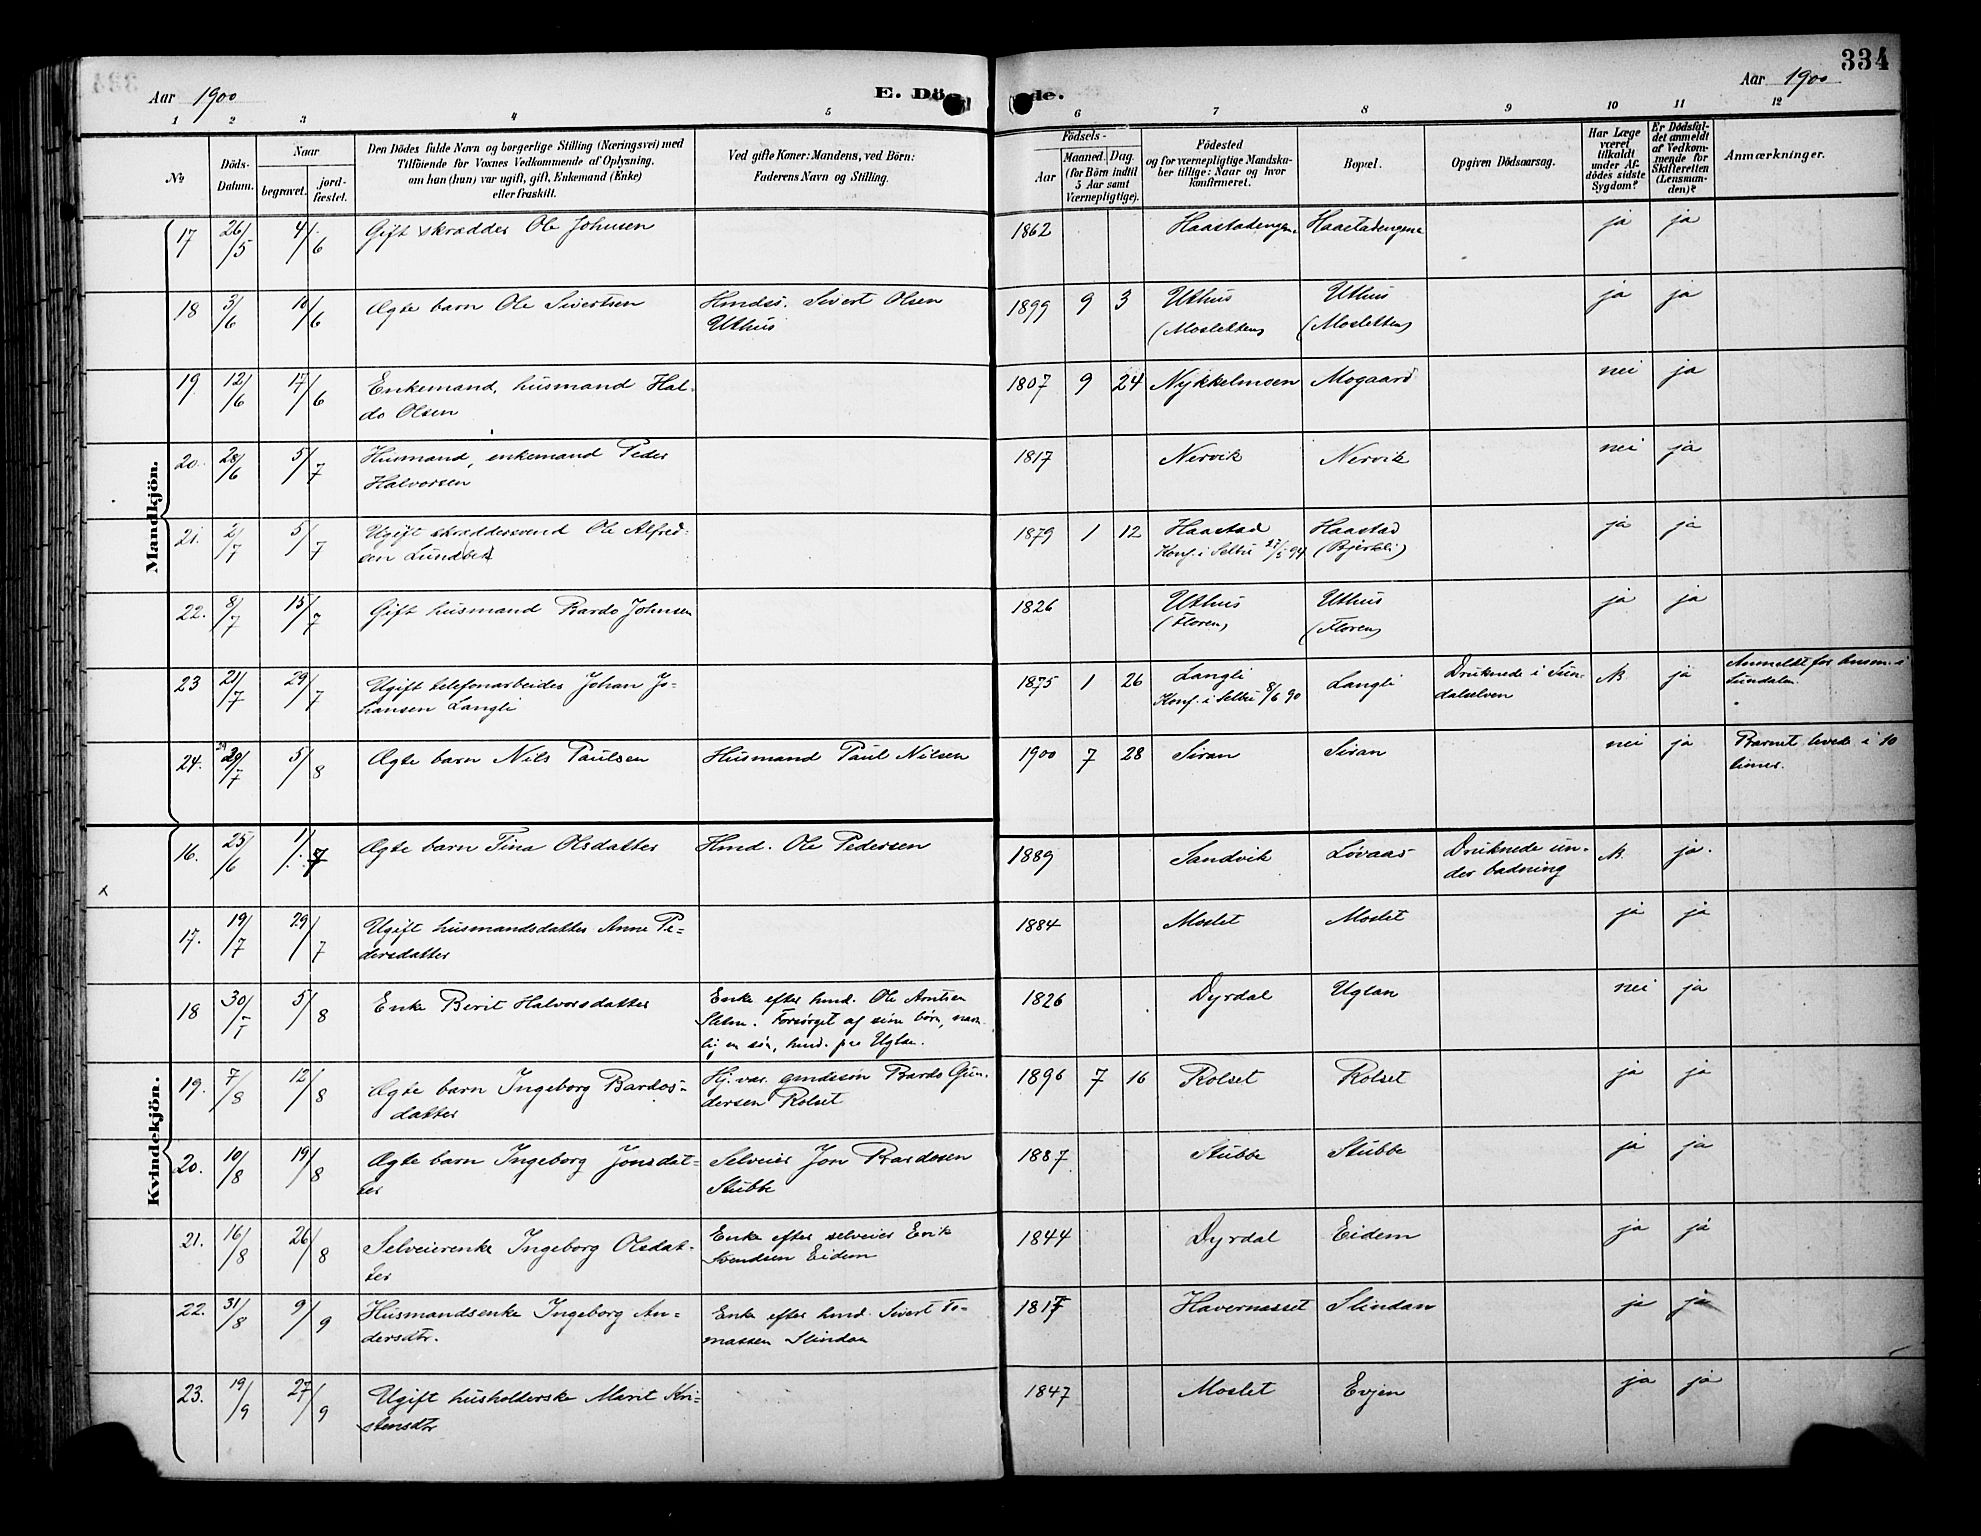 334
Aar 1900
E. Dö de.
Aar 1900
1 2 3 4 5 6 7 8 9 10 11 12
No
Döds-Datum.
Naar
begravet.
jord-fæstet.
Den Dödes fulde Navn og borgerlige Stilling (Næringsvei) med
Tilföiende for Voxnes Vedkommende af Oplysning,
om han (hun) var ugift, gift, Enkemand (Enke)
eller fraskilt.
Ved gifte Koner: Mandens, ved Börn:
Faderens Navn og Stilling.
Födsels-
Aar
Maaned.
Dag.
(for Börn indtil
5 Aar samt
Værnepligtige).
Födested
og for værnepligtige Mandska-
ber tillige: Naar og hvor
konfirmeret.
Bopæl.
Opgiven Dödsaarsag.
Har Læge
været
tilkaldt
under Af-
dödes sidste
Sygdom?
Er Dödsfal-
det anmeldt
af Vedkom-
mende for
Skifteretten
(Lensman-
den)?
Anmærkninger.
Mandkjön.
17 26/5 4/6 Gift skrædder Ole Johnsen 1862 Haastadengen Haastadengene ja ja
18 3/6 10/6 Ægte barn Ole Sivertsen Hmds. Sivert Olsen 1899 9 3 Uthus Uthus ja ja
Uthus (Mosletten) (Mosletten)
19 12/6 17/6 Enkemand, husmand Hal- 1807 9 24 Nykkelmoen Mogaard nei ja
do Olsen
20. 28/6 5/7 Husmand, enkemand Peder 1817 Nervik Nervik nei ja
Halvorsen
21. 2/7 5/7 Ugift skræddersvend Ole Alfred- 1879 1 12 Haastad Haastad ja ja
sen Lund Konf. i Selbu 27/5 94 (Bjerkli)
22. 8/7 15/7 Gift husmand Bardo Johnsen 1826 Uthus Uthus ja ja
(Floren) (Floren)
23 21/7 29/7 Ugift telefonarbeider Johan Jo- 1875 1 26 Langli Langli Druknede i Sun- N. ja Anmeldt for lensm. i
hansen Langli Konf. i Selbu 8/6 90 dalselven Sundalen.
24. 29/7 5/8 Ægte barn Nils Paulsen Husmand Paul Nilsen 1900 7 28 Siran Siran nei ja Barnet levede i 10
timer.
Kvindekjön.
16. 25/6 1/7 Ægte barn Tina Olsdatter Hmd. Ole Pedersen 1889 Sandvik Lovaas Druknede un- N. ja.
der badning
17. 19/7 29/7 Ugift husmandsdatter Anne Pe- 1884 Moslet Moslet ja ja
dersdatter
18 30/7 5/8 Enke Berit Halvorsdatter Enke efter hmd. Ole Arntsen 1826 Dyrdal Uglan nei ja
Forsørget af sine børn, nem-
lig en søn, hmd. paa Uglan.
19. 7/8 12/8 Ægte barn Ingeborg Bardos- Hj. var. gmdsøn Bardo Gun- 1896 7 16 Rolset Rolset ja ja
datter dersen Rolset
20. 10/8 19/8 Ægte barn Ingeborg Jonsdat- Selveier Jon Bardosen 1887 Stubbe Stubbe ja ja
ter Stubbe
21. 16/8 26/8 Selveierenke Ingeborg Olsdat- Enke efter selveier Erik 1844 Dyrdal Eidem ja ja
ter Svendsen Eidem
22. 31/8 9/9 Husmandsenke Ingeborg An- Enke efter hmd. Sivert To- 1817 Havernasset Slindan ja ja
dersdtr. massen Slindan
23. 19/9 27/9 Ugift husholderske Marit Kri- 1847 Moslet Evjen ja ja
stensdtr